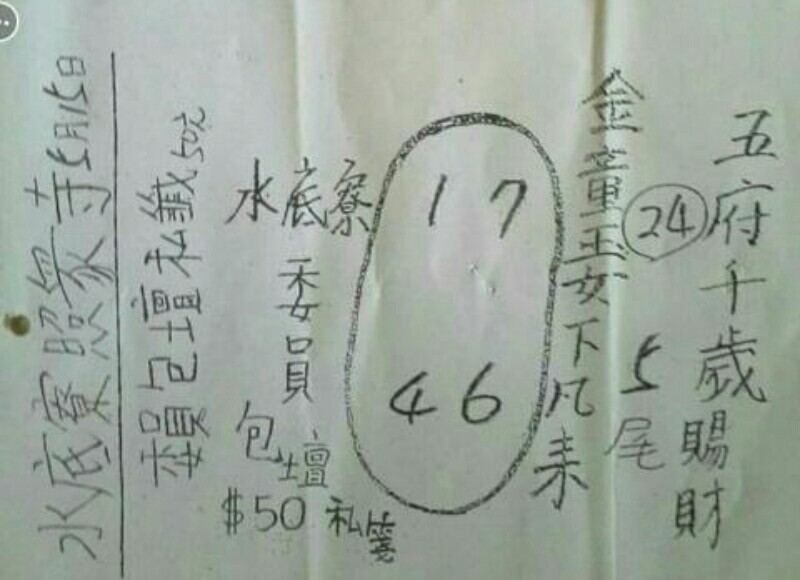 五府千歲賜財
24
5尾
金童玉女下凡来
17
46
水底寮
委員
包壇
$50 私箋
委員包壇私籤50元
水底寮照眾寺5月15日